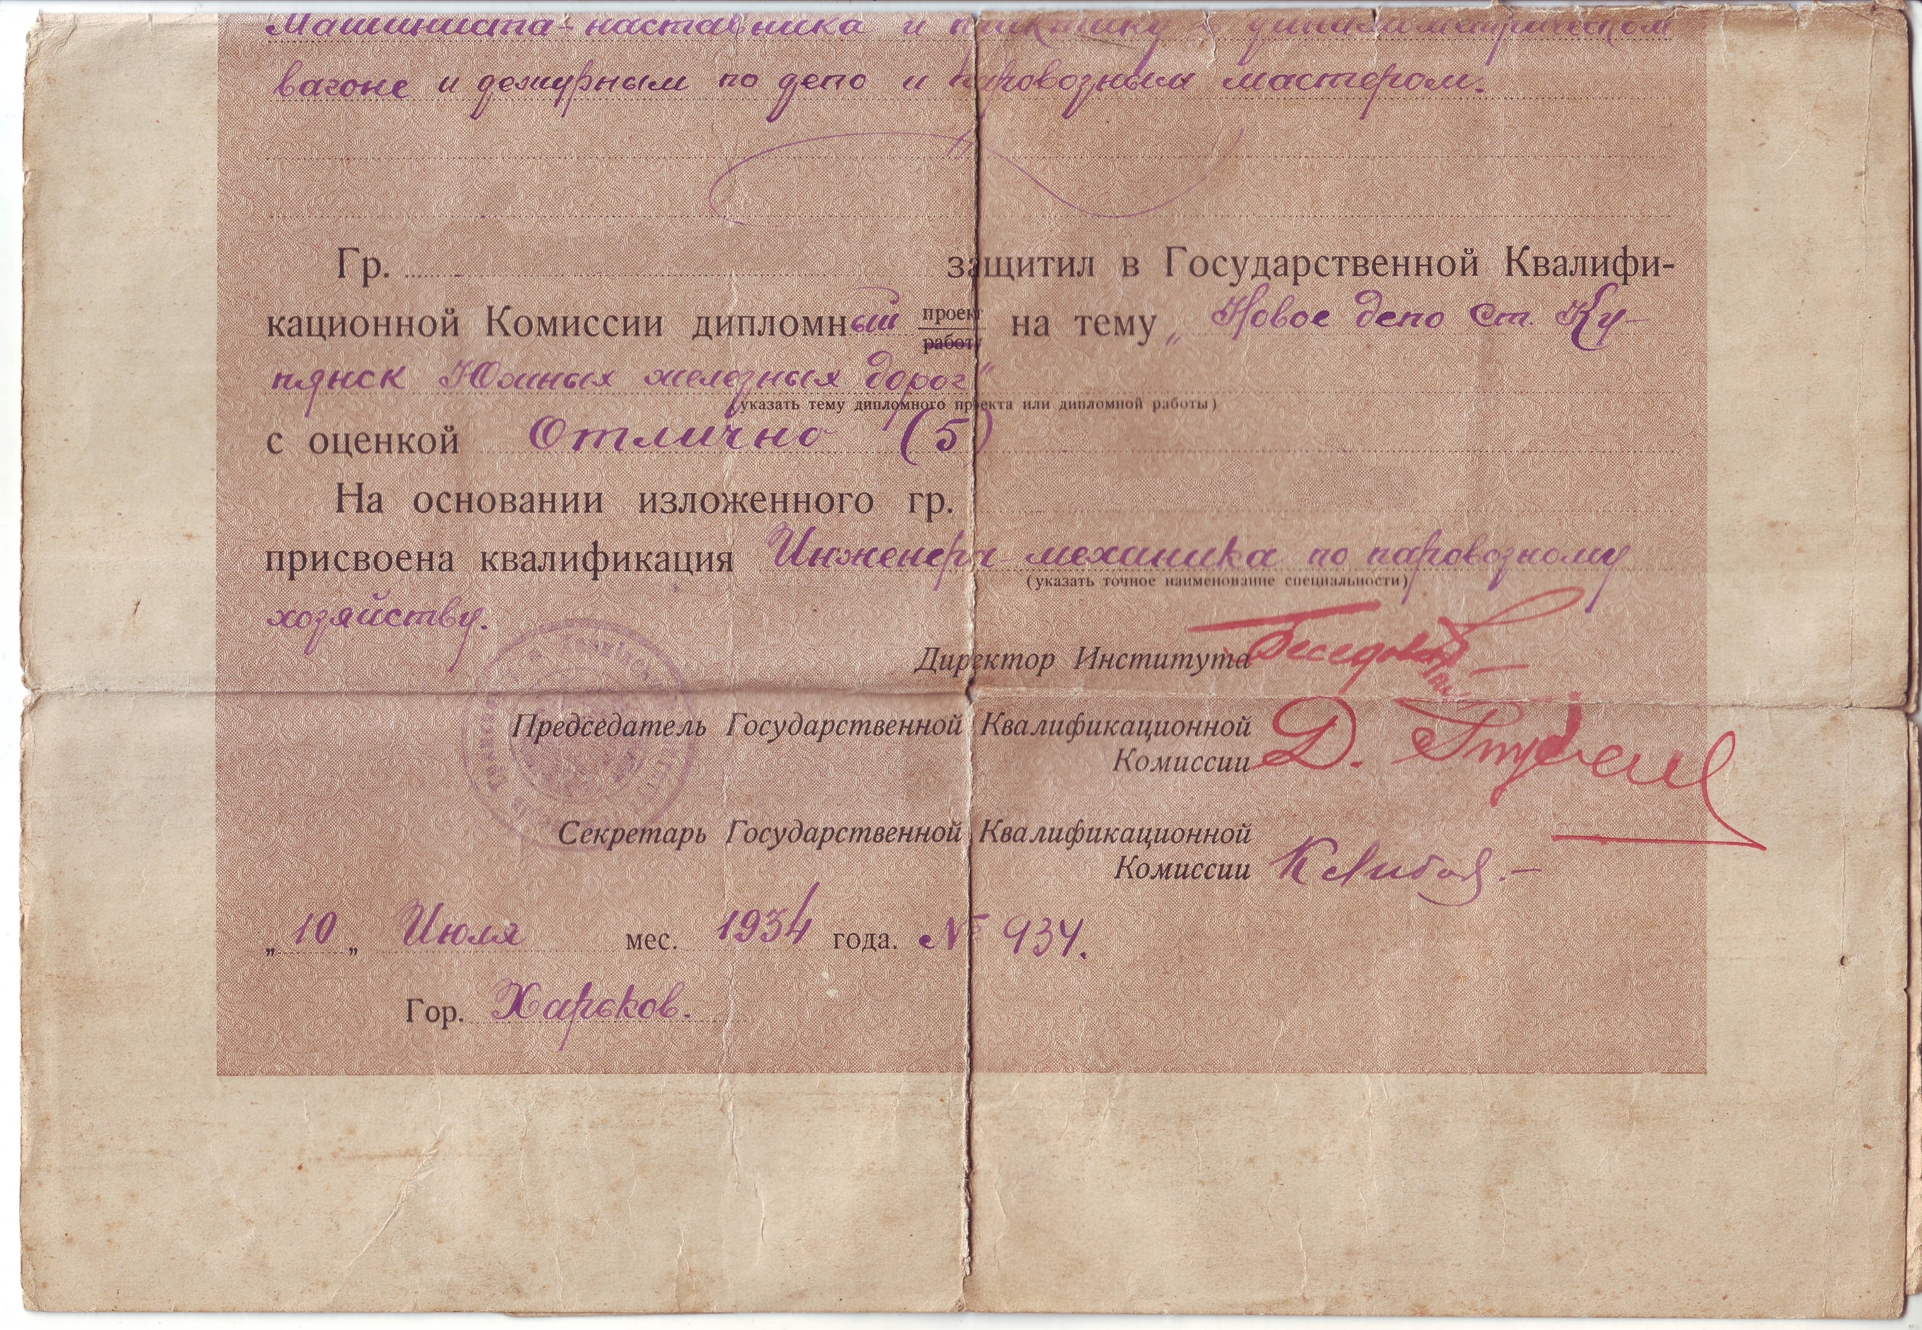 Машиниста-наставника и практику в динамометрическом
вагоне и дежурным по депо и паровозным мастером.
Гр. защитил в Государственной Квалифи-
кационной Комиссии дипломный проект работу на тему „Новое депо ст. Ку-
пянск Южных железных дорог“
(указать тему дипломного проекта или дипломной работы)
с оценкой Отлично (5)
На основании изложенного гр.
присвоена квалификация Инженера механика по паровозному
(указать точное наименование специальности)
хозяйству.
Директор Института
Председатель Государственной Квалификационной
Комиссии Д.
Секретарь Государственной Квалификационной
Комиссии
„10„ Июля мес. 1934 года. № 934.
Гор. Харьков.